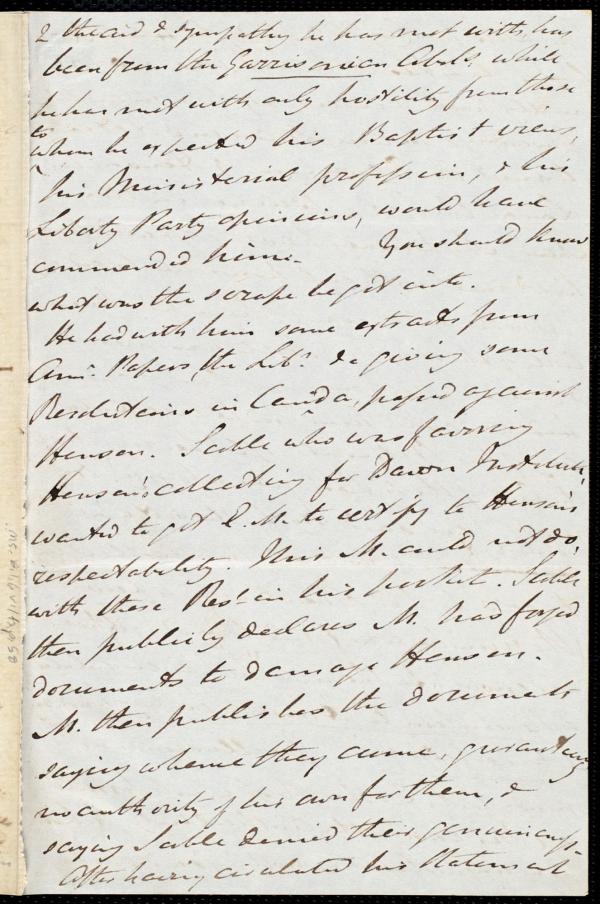 & the aid & sympathy he has met with, has
been from the Garrisonian Abols, while
he has met with only hostility from those
to
whom he expected his Baptist views,
his Ministerial profession, & his
Liberty Party opinions, would have
commended him. You should know
what was the scrape he got into.
He had with him some extracts from
Amn. Papers, the Libr. &c giving some
Resolutions in Canda, passed against
Henson. Scoble who was favoring
Henson's collecting for Dawn Institute,
wanted to get E. M. to certify to Henson's
respectability. This M. could not do,
with these Resns in his pocket. Scoble
then publicly declares M. had forged
documents to damage Henson.
M. then publishes the documents
saying whence they came, guaranteeing
no authority of his own for them, &
saying Scoble denied their genuineness.
After having circulated his statement
Ms. B.1.6 v.14, p.50